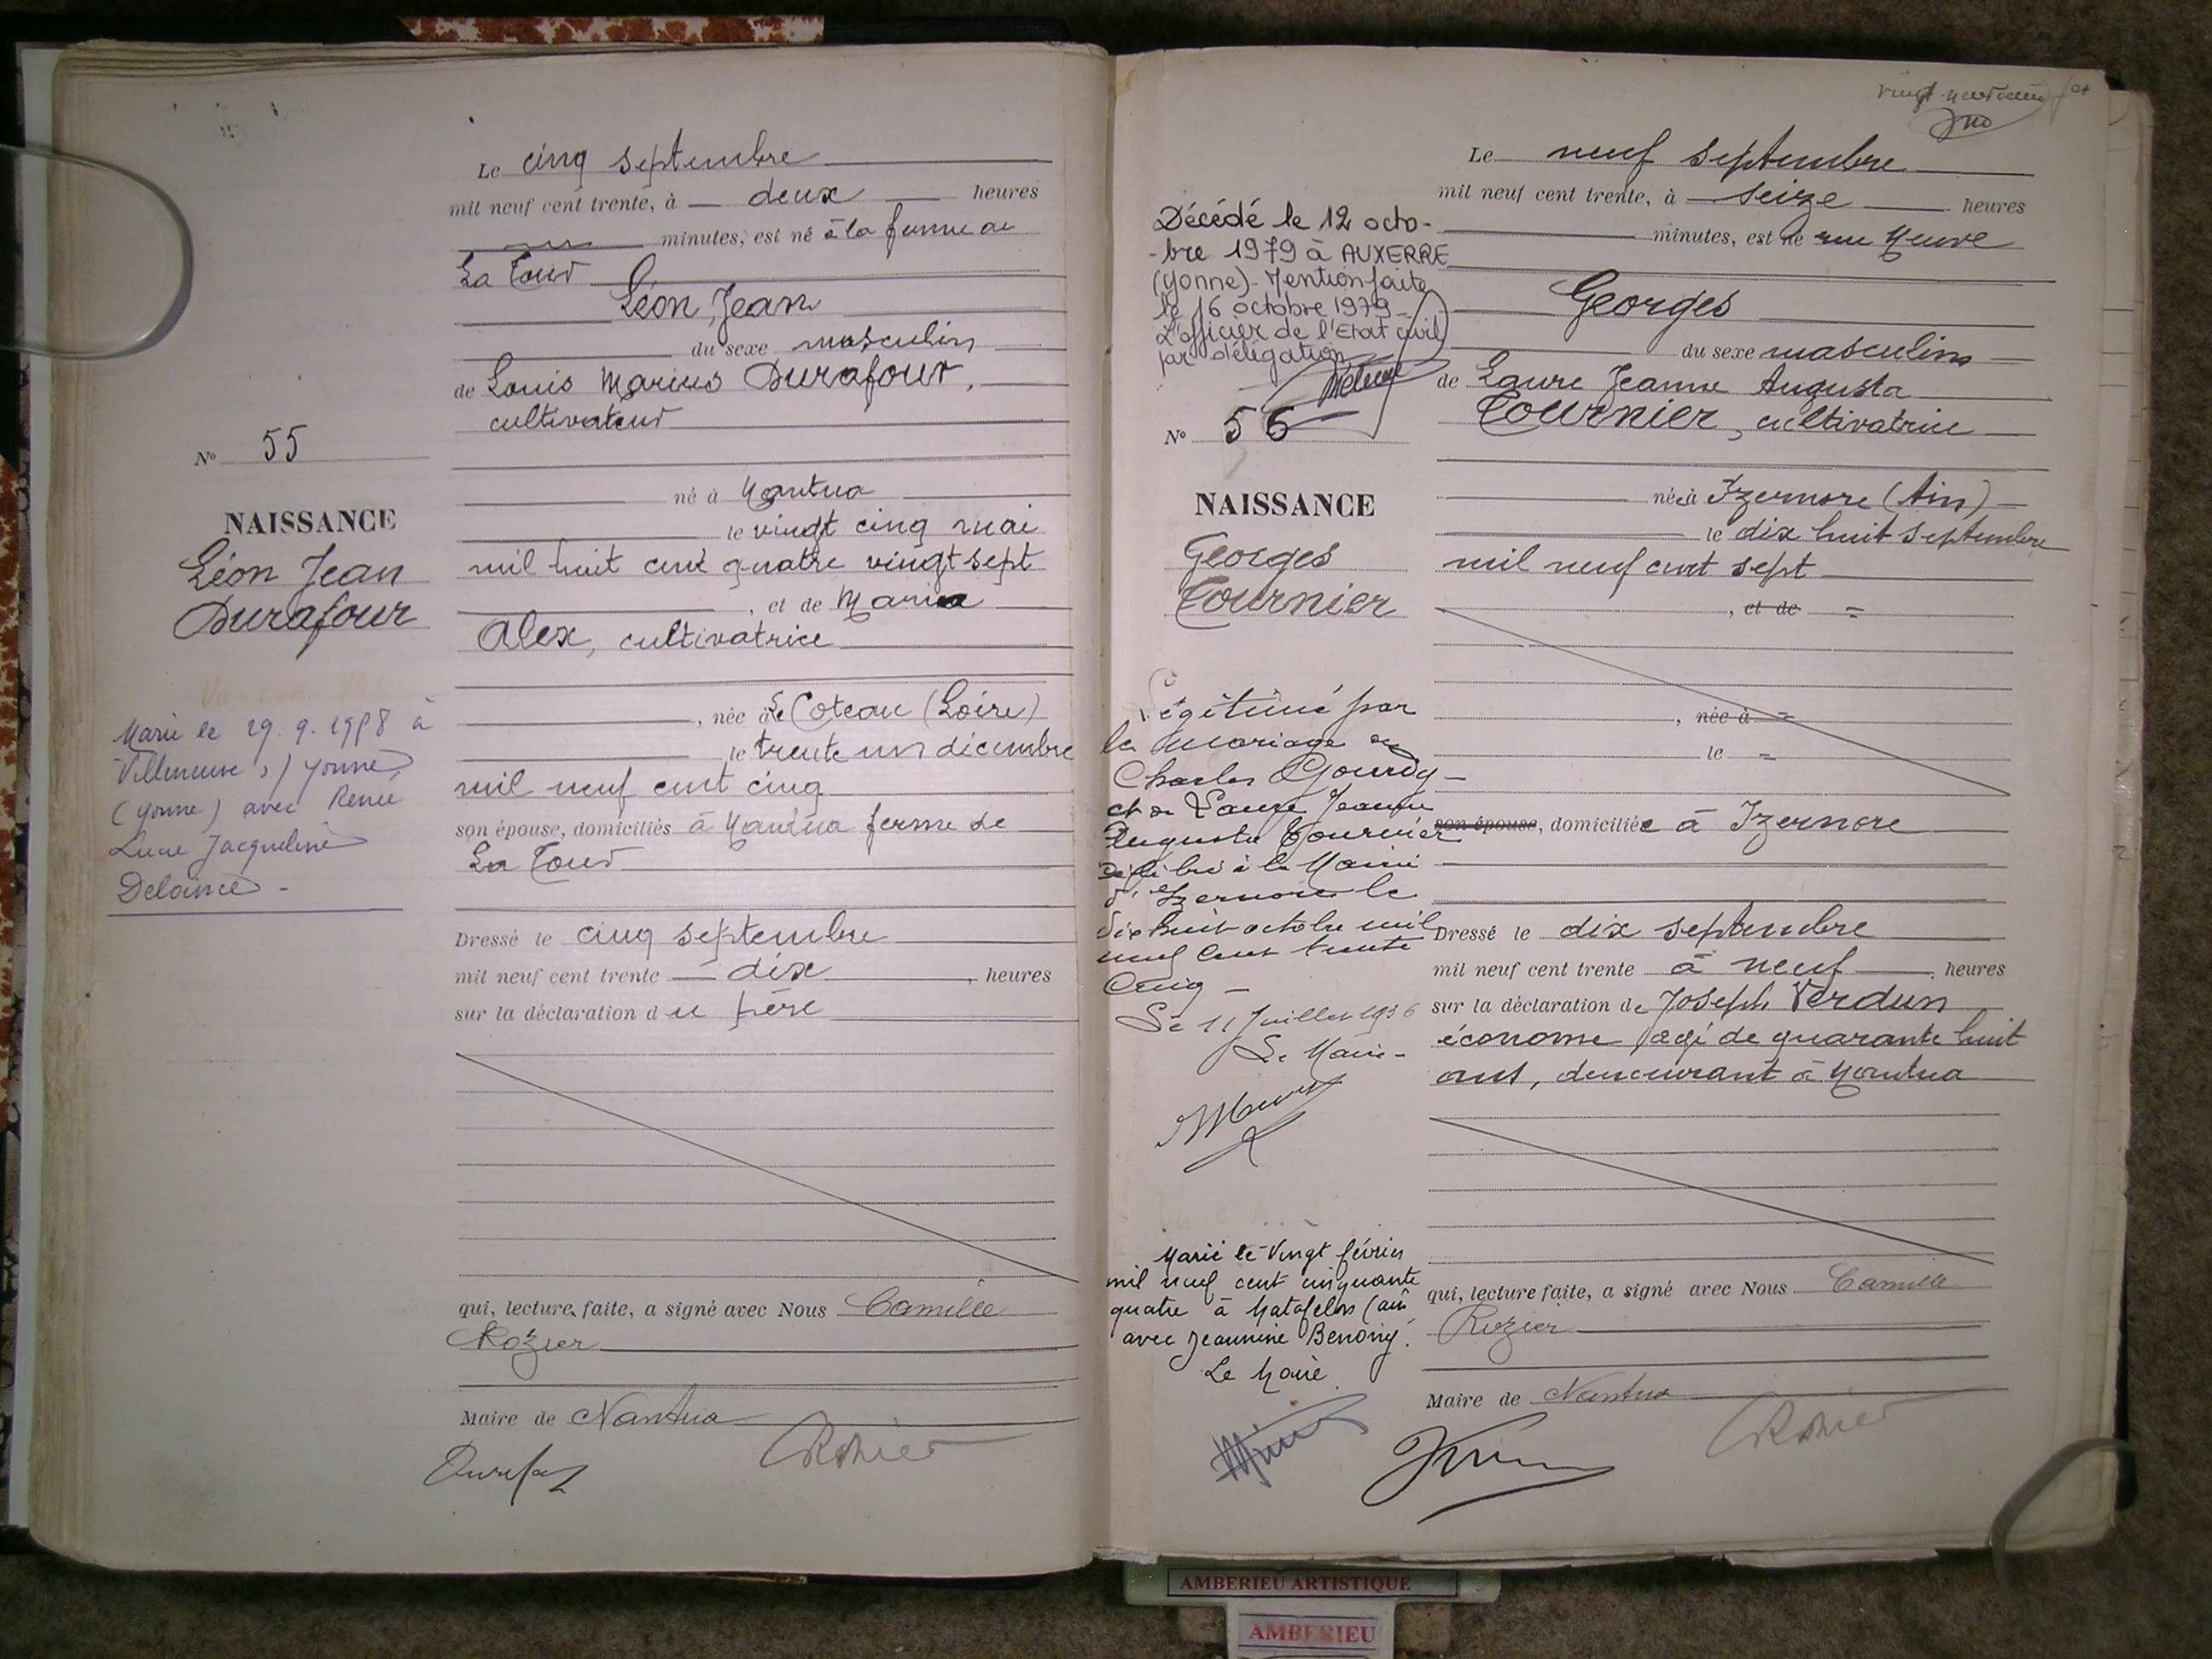 Le cinq septembre
mil neuf cent trente, à deux heures
minutes, est né à la ferme de
La Tour
Léon, Jean
du sexe masculin
de Louis Marius Durafour,
cultivateur
né à Nantua
le vingt cinq mai
mil huit cent quatre vingt sept
, et de Maria
Alex, cultivatrice
, née à Le Coteau (Loire)
le trente un décembre
mil neuf cent cinq
son épouse, domiciliés à Nantua ferme de
La Tour
Dressé le cinq septembre
mil neuf cent trente dix , heures
sur la déclaration du père
qui, lecture faite, a signé avec Nous Camille
Rozier
Maire de Nantua
No 55
NAISSANCE
Léon Jean
Durafour
Marié le 29. 9. 1958 à
Villeneuve s/ Yonne
(Yonne) avec Renée
Lucie Jacqueline
Le neuf septembre
mil neuf cent trente, à seize heures
minutes, est né rue Neuve
Georges
du sexe masculin
de Laure Jeanne Augusta
Tournier, cultivatrice
née à Izernore (Ain)
le dix huit septembre
mil neuf cent sept
, et de =
, née à =
le =
son épouse, domiciliée à Izernore
Dressé le dix septembre
mil neuf cent trente à neuf , heures
sur la déclaration de Joseph Verdun
économe, âgé de quarante huit
ans, demeurant à Nantua
qui, lecture faite, a signé avec Nous Camille
Rozier
Maire de Nantua
Décédé le 12 octo-
-bre 1979 à AUXERRE
(Yonne)- Mention faite
le 16 octobre 1979-
L'officier de l'Etat civil
par délégation
No 56
NAISSANCE
Georges
Tournier
Légitimé par
le mariage de
Charles Gourdy-
et de Laure Jeanne
Augusta Tournier
célébré à la Mairie
d'Izernore le
dix huit octobre mil
neuf cent trente
cinq -
Le 11 Juillet 1936
Le Maire-
Marié le Vingt février
mil neuf cent cinquante
quatre à Matafelon (Ain
avec Jeannine Benony.
Le Maire
AMBERIEU ARTISTIQUE
AMBERIEU